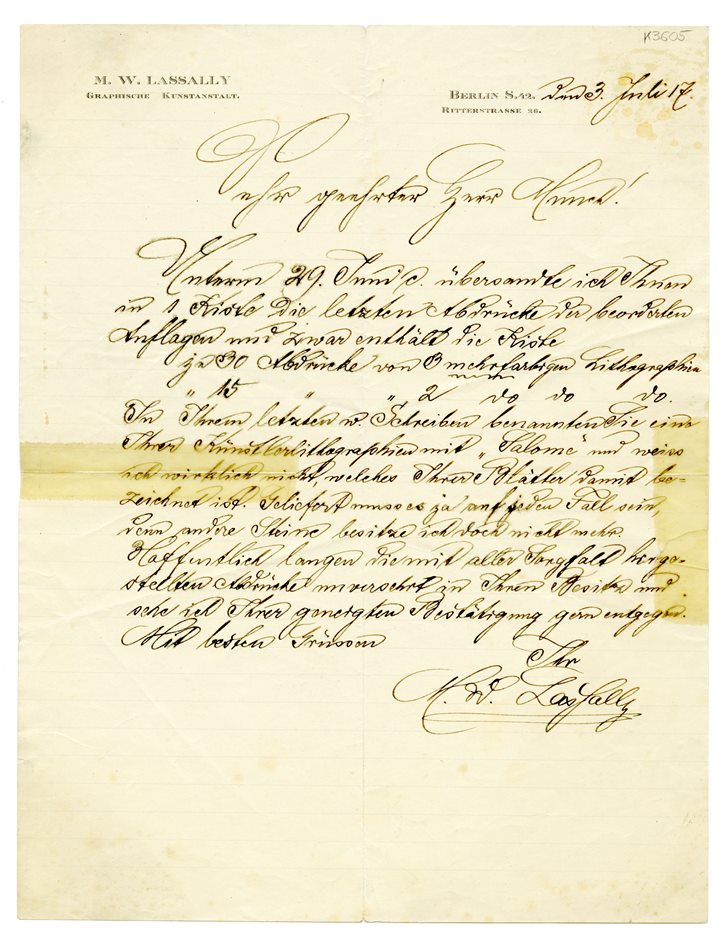 K3605
M. W. LASSALLY
GRAPHISCHE KUNSTANSTALT.
BERLIN S.42. den 3. Juli 17.
RITTERSTRASSE 26.
Sehr geehrter Herr Munch!
Unterm 29. Juni c. übersandte ich Ihnen
in 1 Kiste die letzten Abdrücke der beorderten
Auflagen und zwar enthält die Kiste
je 30 Abdrücke von 3 mehrfarbigen Lithographien
" 15 " " 2 do do do.
In Ihrem letzten w. Schreiben benannten Sie eine
Ihrer Künstlerlithographien mit „Salome" und weiss
ich wirklich nicht, welches Ihrer Blätter damit be-
zeichnet ist. Geliefert muss es ja auf jeden Fall sein,
denn andere Steine besitze ich doch nicht mehr.
Hoffentlich langen die mit aller Sorgfalt herge-
stellten Abdrücke unversehrt in Ihren Besitz und
sehe ich Ihrer geneigten Bestätigung gern entgegen.
Mit besten Grüssen
Ihr
M. W. Lassally